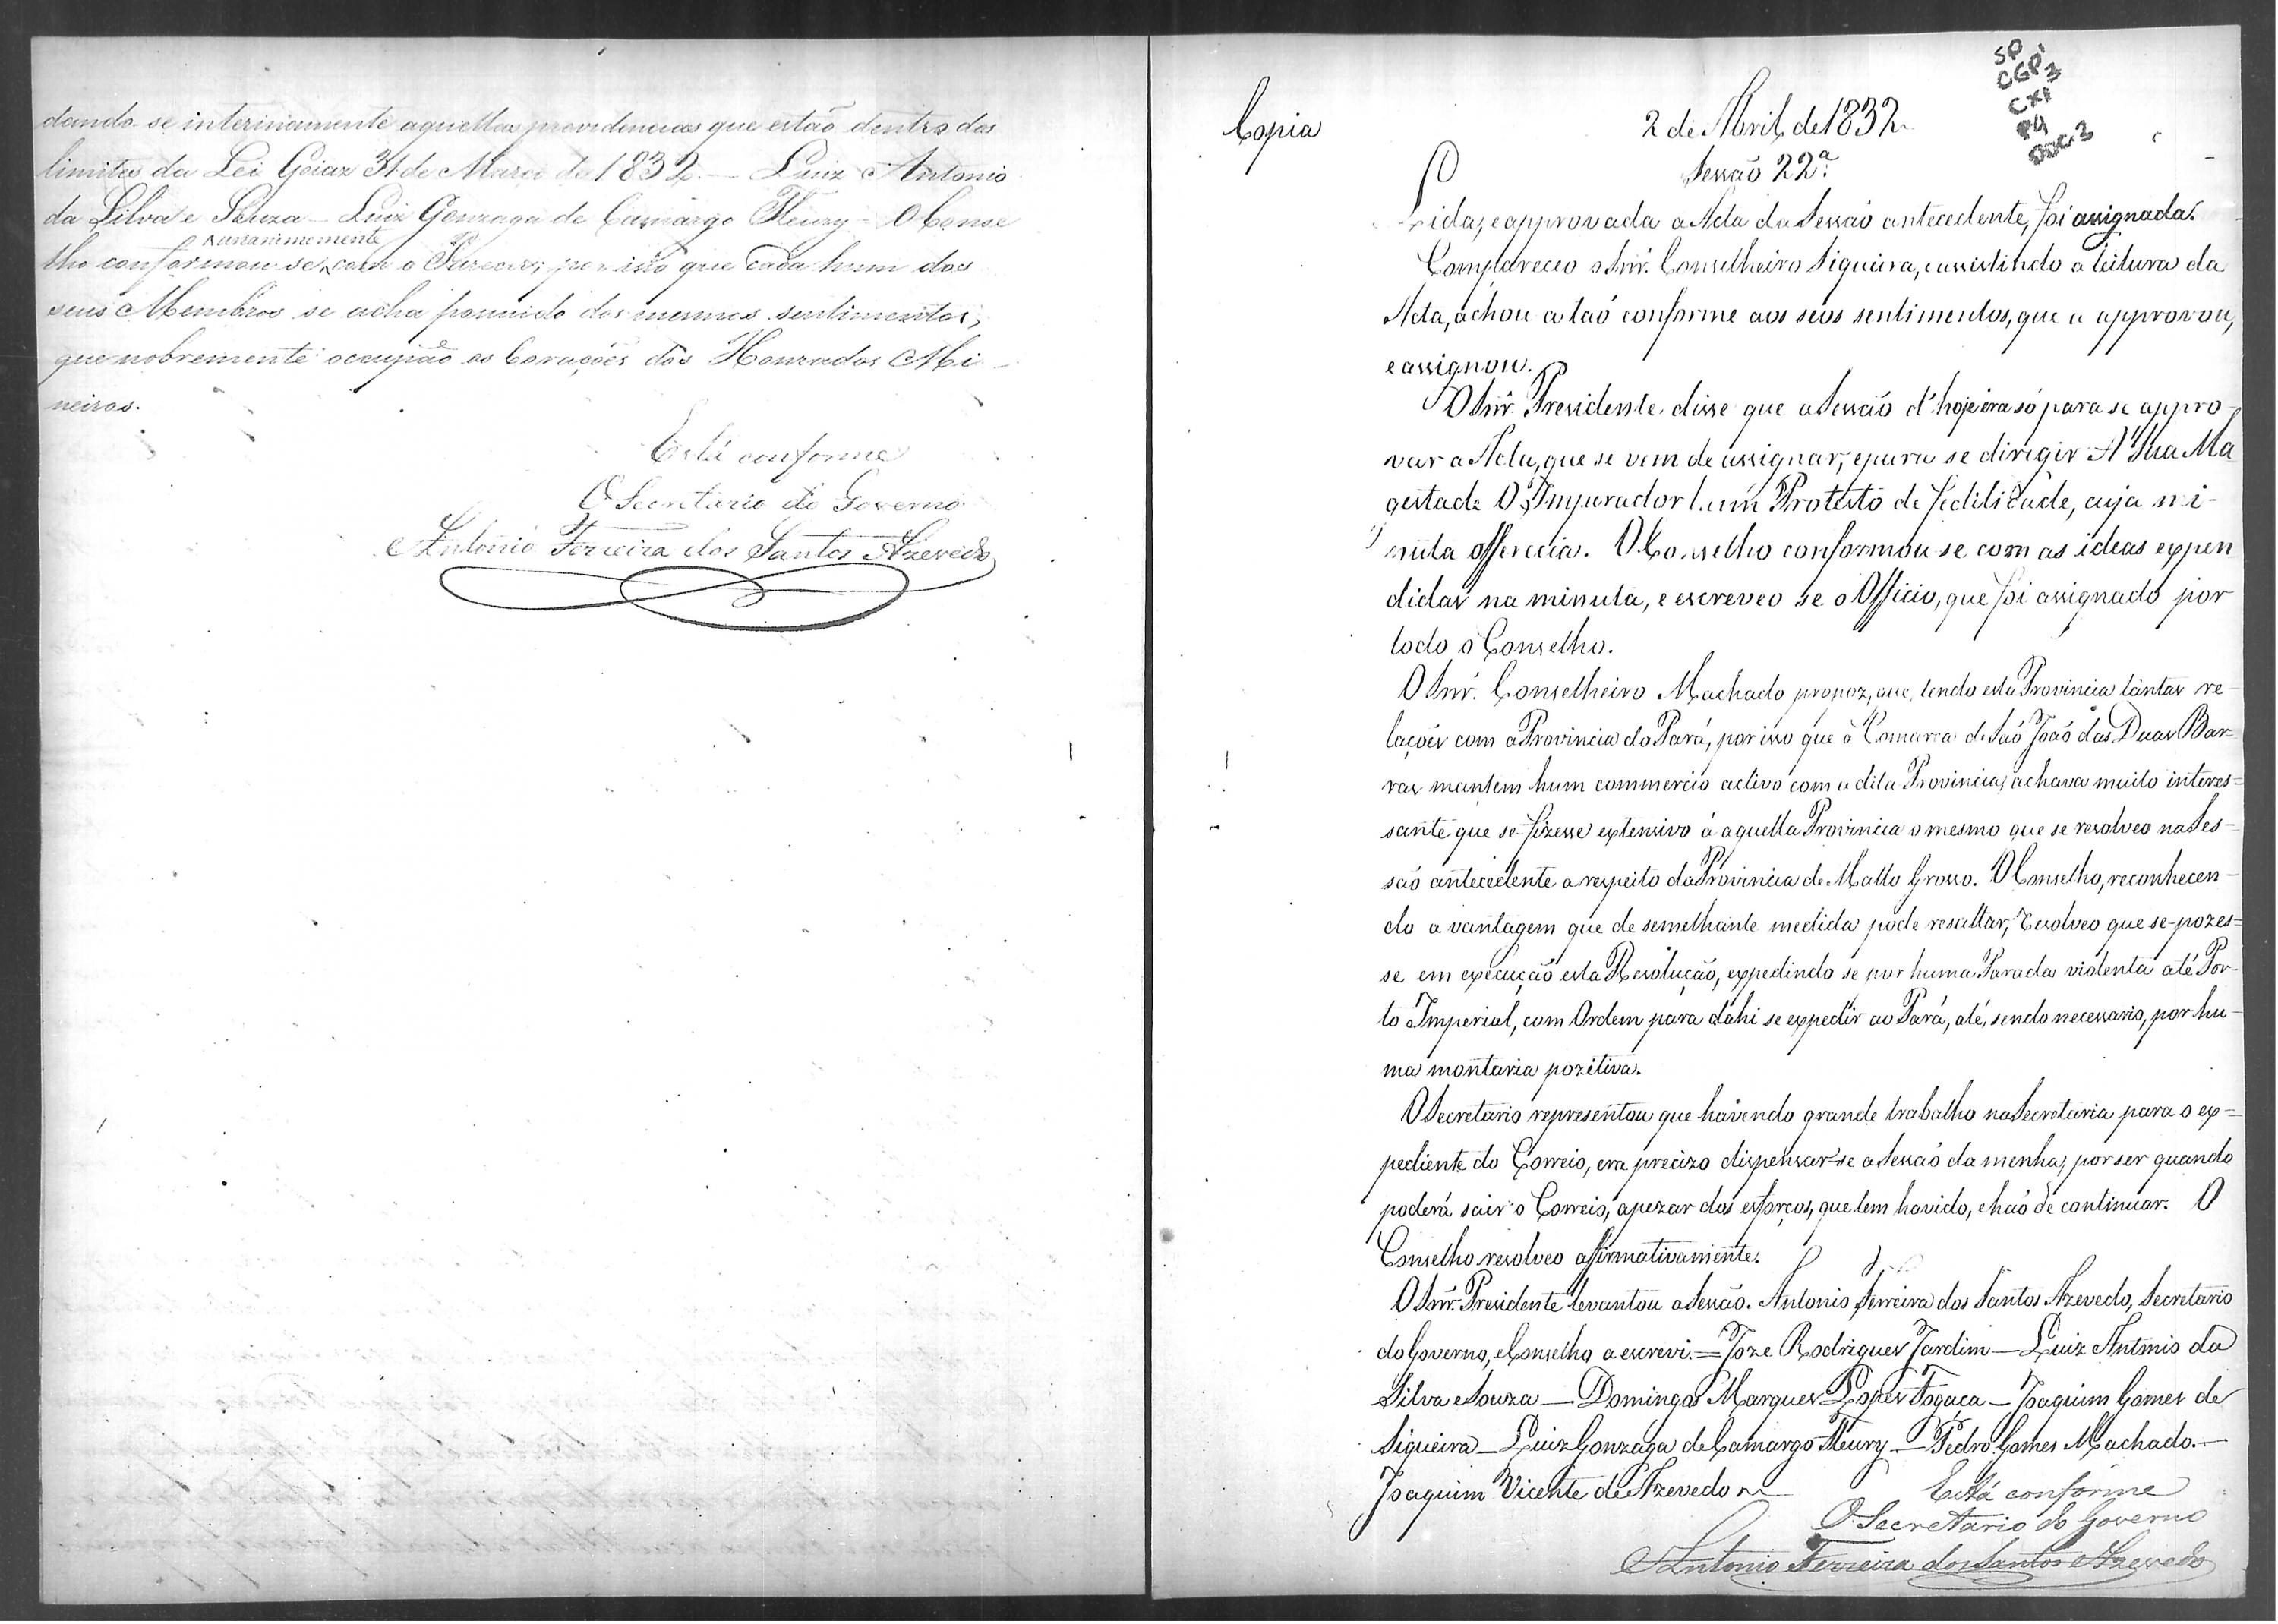 dando-se interinamente aquellas providencias que estão dentro dos
limites da Lei Goiaz 31 de Março de 1832 — Luiz Antonio
da Silva e Souza — Luiz Gonzaga de Camargo Fleury — O Conse
unanimemente
lho conformou-se, com o Parecer, por isso que cada hum dos
seus Membros se acha possuido dos mesmos sentimentos,
que nobremente occupão os Corações dos Honrados Mi-
neiros.
Está conforme
O Secretario do Governo
Antonio Ferreira dos Santos Azevedo
SP
CGP1
3
CX1
P4
DOC.3
Copia
2 de Abril de 1832
Sessão 22ª
Lida, e approvada a Acta da Sessaõ antecedente, foi assignada.
Compareceo o Snr. Conselheiro Siqueira, e assistindo a leitura da
Acta, achou a taõ conforme aos seos sentimentos, que a approvou,
e assignou.
O Snr. Presidente disse que a Sessaõ d'hoje era só para se appro-
var a Acta, que se vem de assignar, e para se dirigir A' Sua Ma
gestade O Imperador hum Protesto de fedilidade, cuja mi-
nuta offerecia. O Conselho conformou-se com as ideas expen
didas na minuta, e escreveo se o Officio, que foi assignado por
todo o Conselho.
O Snr. Conselheiro Machado propoz, que, tendo esta Provincia tantas re-
laçoẽs com a Provincia do Pará, por isso que a Comarca de Saõ Joaõ das Duas Bar-
ras mantem hum commercio activo com a dita Provincia, achava muito interes=
sante que se fizesse extensivo á aquella Provincia o mesmo que se resolveo na Ses-
saõ antecedente a respeito da Provincia de Matto Grosso. O Conselho, reconhecen-
do a vantagem que de semelhante medida pode resultar, resolveo que se pozes=
se em execução esta Resolução, expedindo se por huma Parada violenta até Por-
to Imperial, com Ordem para dahi se expedir ao Pará, até, sendo necessario, por hu-
ma montaria pozitiva.
O Secretario representou que havendo grande trabalho na Secretaria para o ex=
pediente do Correio, era precizo dispensar-se a Sessaõ da menhã, por ser quando
poderá sair o Correio, apezar dos esforços, que tem havido, e haõ de continuar. O
Conselho resolveo affirmativamente.
O Snr. Presidente levantou a Sessão. Antonio Ferreira dos Santos Azevedo, Secretario
do Governo, e Conselho a escrevi. = Joze Rodrigues Jardim — Luiz Antonio da
Silva e Souza — Domingos Marques Lopes Fogaça — Joaquim Gomes de
Siqueira — Luiz Gonzaga de Camargo Fleury — Pedro Gomes Machado. —
Joaquim Vicente de Azevedo
Está conforme
O Secretario do Governo
Antonio Ferreira dos Santos Azevedo